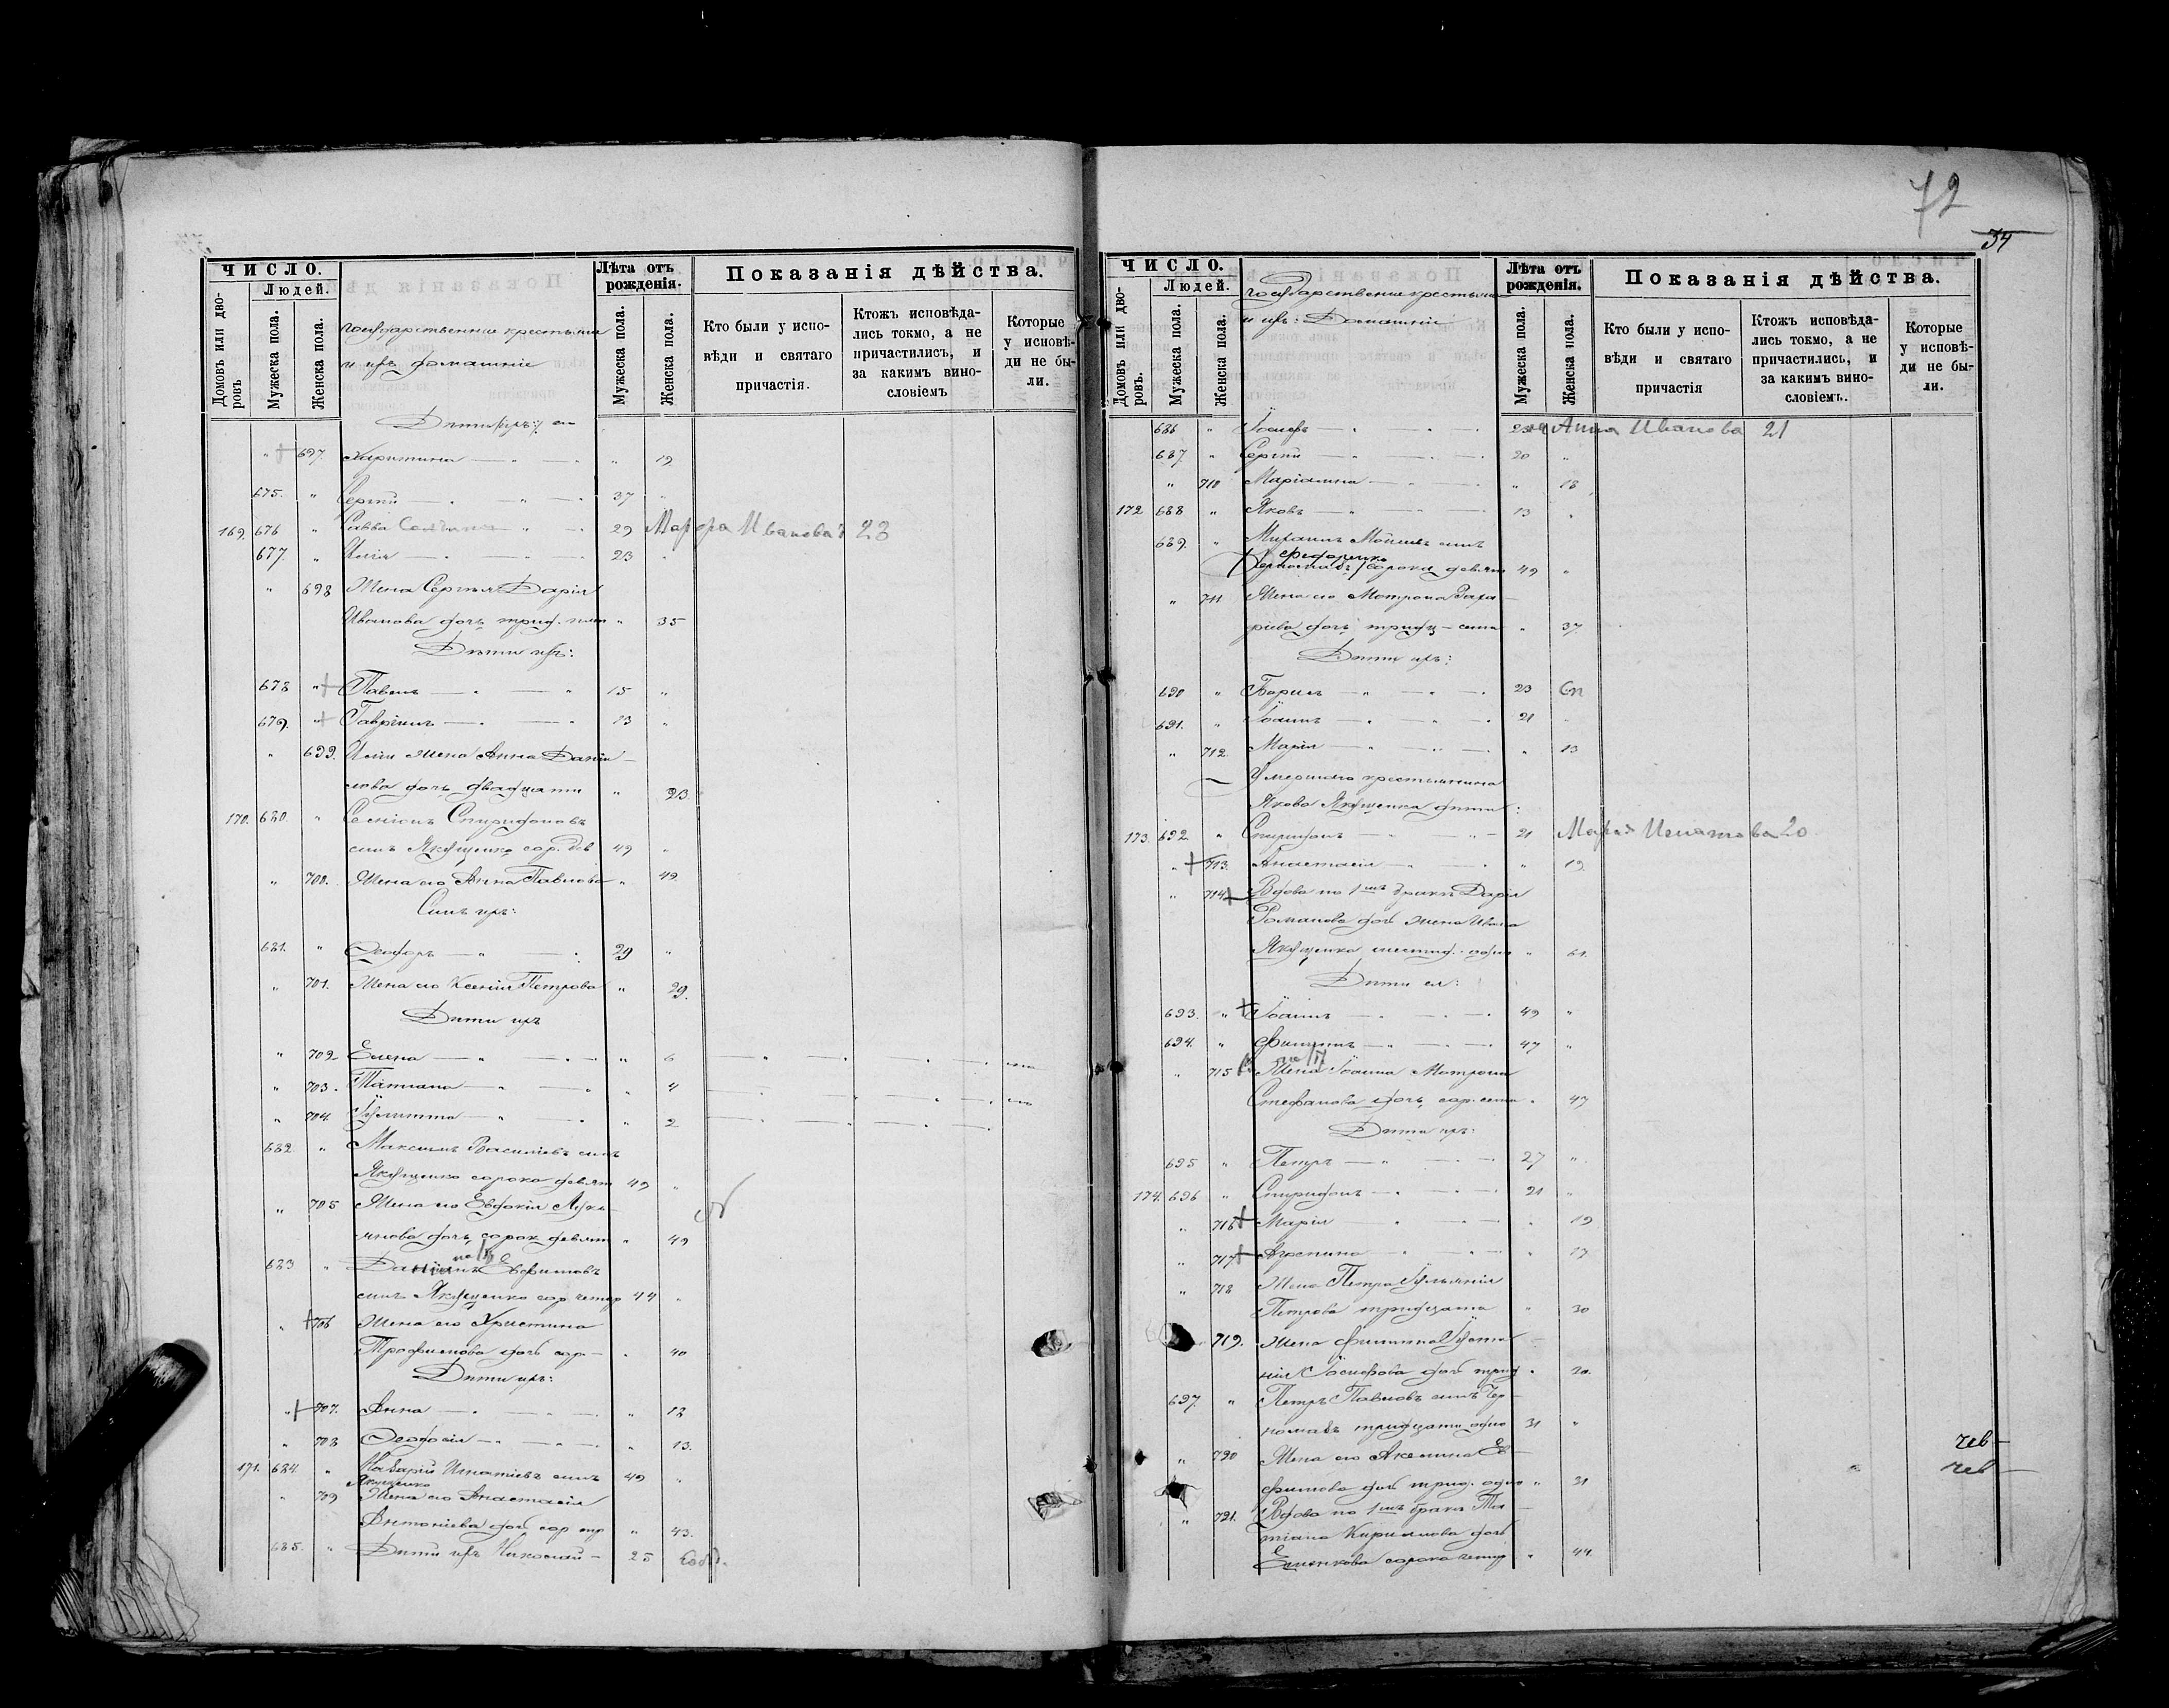 72
34
ЧИСЛО.
Людей.
Домовъ или дворовъ
Мужеска пола.
Женска пола.
государственные крестьяне
и ихъ домашніе
Лѣта отъ рожденія.
Мужеска пола.
Женска пола.
Показанія дѣйства.
Кто были у исповѣди и святаго причастія.
Ктожъ исповѣдались токмо, а не причастились, и за какимъ винословіемъ
Которые у исповѣди не были.
Дѣти ихъ:
" 697 Харитина " 19
675. " Сергій 37 "
169. 676 " Савва 29 Марфа Иванова 23
677. " Илія 23 "
" 698 Жена Сергія Дарія
Иванова дочь " 35
Дѣти ихъ:
678 " Павелъ 15 "
679. " Гавріилъ 13 "
" 699. Иліи жена Анна Даніи-
лова дочь двадцати " 23
170. 680. " Спиридоновъ
сынъ Якущенко сор. дев 49 "
" 700. Жена его Анна Павлова " 49
Сынъ ихъ:
681. " Ѳеодоръ 29 "
" 701. Жена его Ксенія Петрова " 29.
Дѣти ихъ
" 702 Елена " 6
" 703. Татіана " 4
" 704. Іулитта " 2
682 " Максимъ Василіевъ сынъ
Якущенко сорока девят 49 "
" 705 Жена его Евдокія Лукь-
янова дочь, сорок девят " 49
683 " Даніилъ Евфимовъ
сынъ Якущенко сор. четыр 44 "
" 706 Жена его Христина
Трофимова дочь сор. " 40
Дѣти ихъ:
" 707. Анна " 12
" 708 Ѳеодосія " 13.
171. 684. " Назарій Игнатіевъ сынъ 49 "
Якущенко
" 709 Жена его Анастасія
Антоніева дочь сор тр " 43.
685. " Дѣти ихъ Николай 25
ЧИСЛО.
Людей.
Домовъ или дворовъ.
Мужеска пола.
Женска пола.
государственные крестьяне
и ихъ: Домашніе
Лѣта отъ рожденія.
Мужеска пола.
Женска пола.
Показанія дѣйства.
Кто были у исповѣди и святаго причастія
Ктожъ исповѣдались токмо, а не причастились, и за какимъ винословіемъ.
Которые у исповѣди не были.
686 " Іосифъ 23 Анна Иванова 21
687. " Сергій 20 "
" 710 Маріанна " 18
172 688 " Яковъ 13 "
689. " Михаилъ Моисеевъ сынъ
Федоренко
сорока девят 49 "
" 711 Жена его Матрона Заха-
ріева дочь тридц-семи " 37
Дѣти ихъ:
690 " Борисъ 23
691. " Іоаннъ 21
" 712. Марія " 13
Умершаго крестьянина
Якова Якущенка дѣти:
173. 692 " Спиридонъ 21 Марія Игнатова 20
" 713. Анастасія " 19
" 714 Вдова по 1мъ бракѣ Дарія
Романова дочь жена Ивана
Якущенка шестид. одно " 61.
Дѣти ея:
693. " Іоаннъ 49 "
694. " Филиппъ 47 "
" 715 Жена Іоанна Матрона
Стефанова дочь, сор. семи " 47
Дѣти ихъ:
695 " Петръ 27 "
174. 696 " Спиридонъ 21 "
" 716 Марія " 19
" 717 Агрепина " 17
" 718 Жена Петра Іульянія
Петрова тридцати " 30
719. Жена Филиппа
Іосифова дочь
697. " Петръ Павловъ сынъ Чер-
тридцати одно 31 "
" 720 Жена его Акелина Ев-
фимова дочь трид. одно " 31
" 721. Вдова по 1мъ бракѣ Та-
тіана Кирилова дочь
сорока четыр " 44